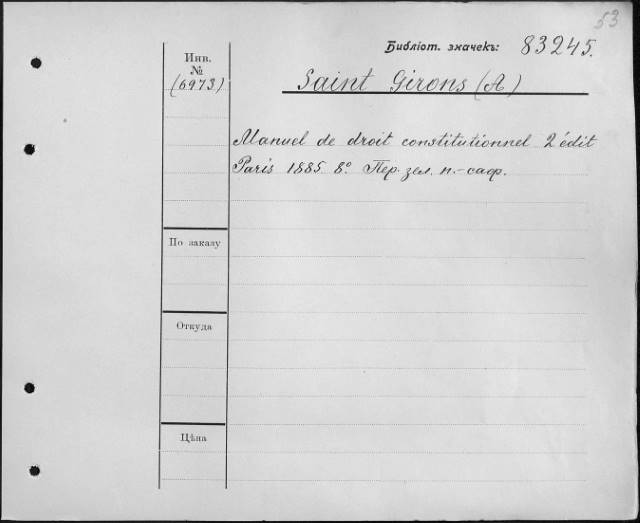 53
Библіот. значекъ: 83245.
Инв.
№
(6973)
Saint Girons (A)
Manuel de droit constitutionnel 2 édit
Paris 1885 8º. Пер. зел. п.-сафр.
По заказу
Откуда
Цѣна